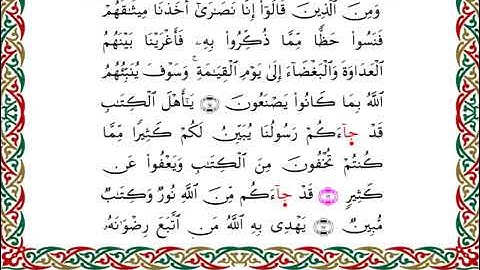 وَمِنَ ٱلَّذِينَ قَالُوٓا۟ إِنَّا نَصَٰرَىٰٓ أَخَذْنَا مِيثَٰقَهُمْ
فَنَسُوا۟ حَظًّا مِّمَّا ذُكِّرُوا۟ بِهِۦ فَأَغْرَيْنَا بَيْنَهُمُ
ٱلْعَدَاوَةَ وَٱلْبَغْضَآءَ إِلَىٰ يَوْمِ ٱلْقِيَٰمَةِ ۚ وَسَوْفَ يُنَبِّئُهُمُ
ٱللَّهُ بِمَا كَانُوا۟ يَصْنَعُونَ يَٰٓأَهْلَ ٱلْكِتَٰبِ
قَدْ جَآءَكُمْ رَسُولُنَا يُبَيِّنُ لَكُمْ كَثِيرًا مِّمَّا
كُنتُمْ تُخْفُونَ مِنَ ٱلْكِتَٰبِ وَيَعْفُوا۟ عَن
كَثِيرٍ قَدْ جَآءَكُم مِّنَ ٱللَّهِ نُورٌ وَكِتَٰبٌ
مُّبِينٌ يَهْدِى بِهِ ٱللَّهُ مَنِ ٱتَّبَعَ رِضْوَٰنَهُۥ